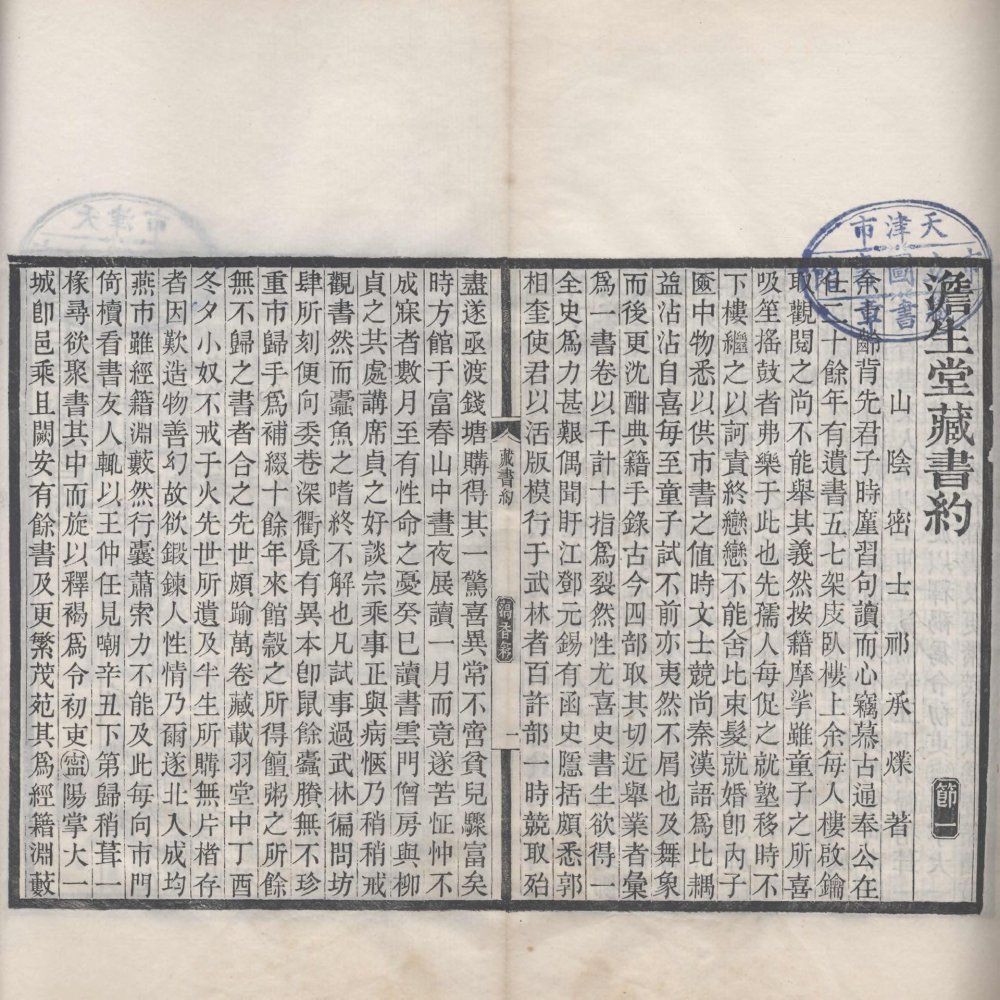 澹生堂藏書約
山陰密士祁承㸁著
節一
余齠背先君子時廑習句讀而心竊慕古通奉公在
仕二十餘年有遺書五七架庋臥樓上余每入樓啟鑰
取觀閱之尚不能舉其義然按籍摩挲雖童子之所喜
吸笙搖鼓者弗樂于此也先孺人每促之就塾移時不
下樓繼之以訶責終戀戀不能舍比束髮就婚卽內子
匳中物悉以供市書之值時文士競尚秦漢語爲比耦
益沾沾自喜每至童子試不前亦夷然不屑也及舞象
而後更沈酣典籍手錄古今四部取其切近舉業者彙
爲一書卷以千計十指爲裂然性尤喜史書生欲得一
全史爲力甚艱偶聞盱江鄧元錫有函史隱括頗悉郭
相奎使君以活版模行于武林者百許部一時競取殆
藏書約
藕香簃
一
盡遂亟渡錢塘購得其一驚喜異常不啻貧兒驟富矣
時方館于富春山中晝夜展讀一月而竟遂苦怔忡不
成寐者數月至有性命之憂癸巳讀書雲門僧房與柳
貞之其處講席貞之好談宗乘事正與病愜乃稍稍戒
觀書然而蠹魚之嗜終不解也凡試事過武林徧問坊
肆所刻便向委巷深衢覓有異本卽鼠餘蠹賸無不珍
重市歸手爲補綴十餘年來館穀之所得饘粥之所餘
無不歸之書者合之先世頗踰萬卷藏載羽堂中丁酉
冬夕小奴不戒于火先世所遺及半生所購無片楮存
者因歎造物善幻故欲鍛鍊人性情乃爾遂北入成均
燕市雖經籍淵藪然行囊蕭索力不能及此每向市門
倚櫝看書友人輒以王仲任見嘲辛丑下第歸稍葺一
椽尋欲聚書其中而旋以釋褐爲令初吏寧陽掌大一
城卽邑乘且闕安有餘書及更繁茂苑其爲經籍淵藪
天津市
圖書